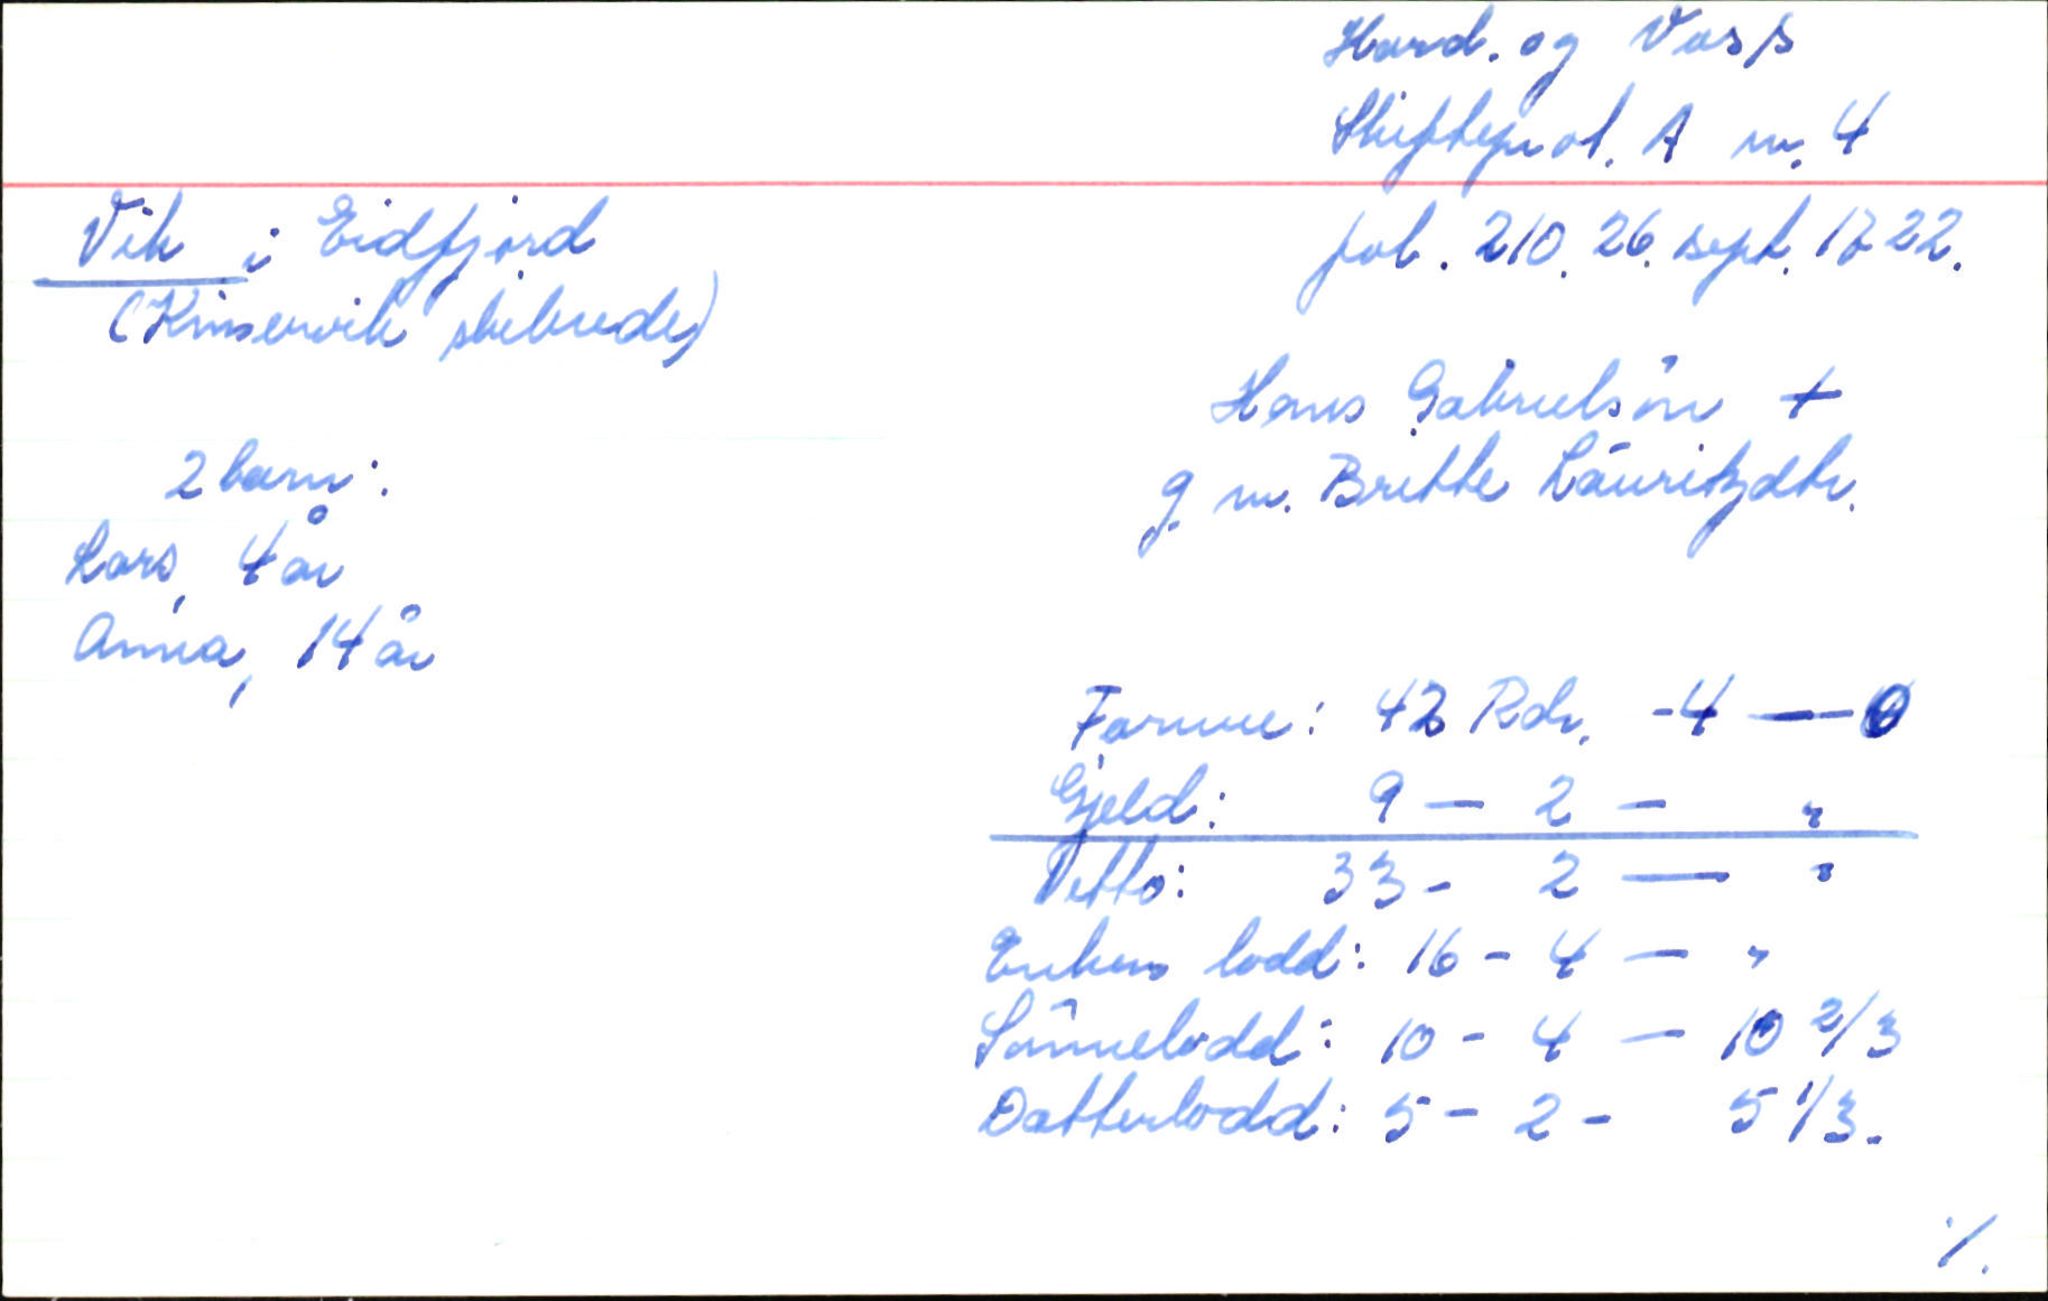 Hard. og Voss
Skifteprot. A nr. 4
fol. 210. 26. sept. 1722.
Vik i Eidfjord
(Kinservik skibrede)
Hans Gabrielsön +
g. m. Britte Lauritzdtr.
2 barn:
Lars, 4 år
Anna, 14 år
Formue: 42 Rdr. - 4 — 0
Gjeld: 9 — 2 — "
Netto: 33 - 2 — "
Enkens lodd: 16 - 4 — "
Sönnelodd: 10 - 4 — 10 2/3
Datterlodd: 5 - 2 - 5 1/3.
·/.